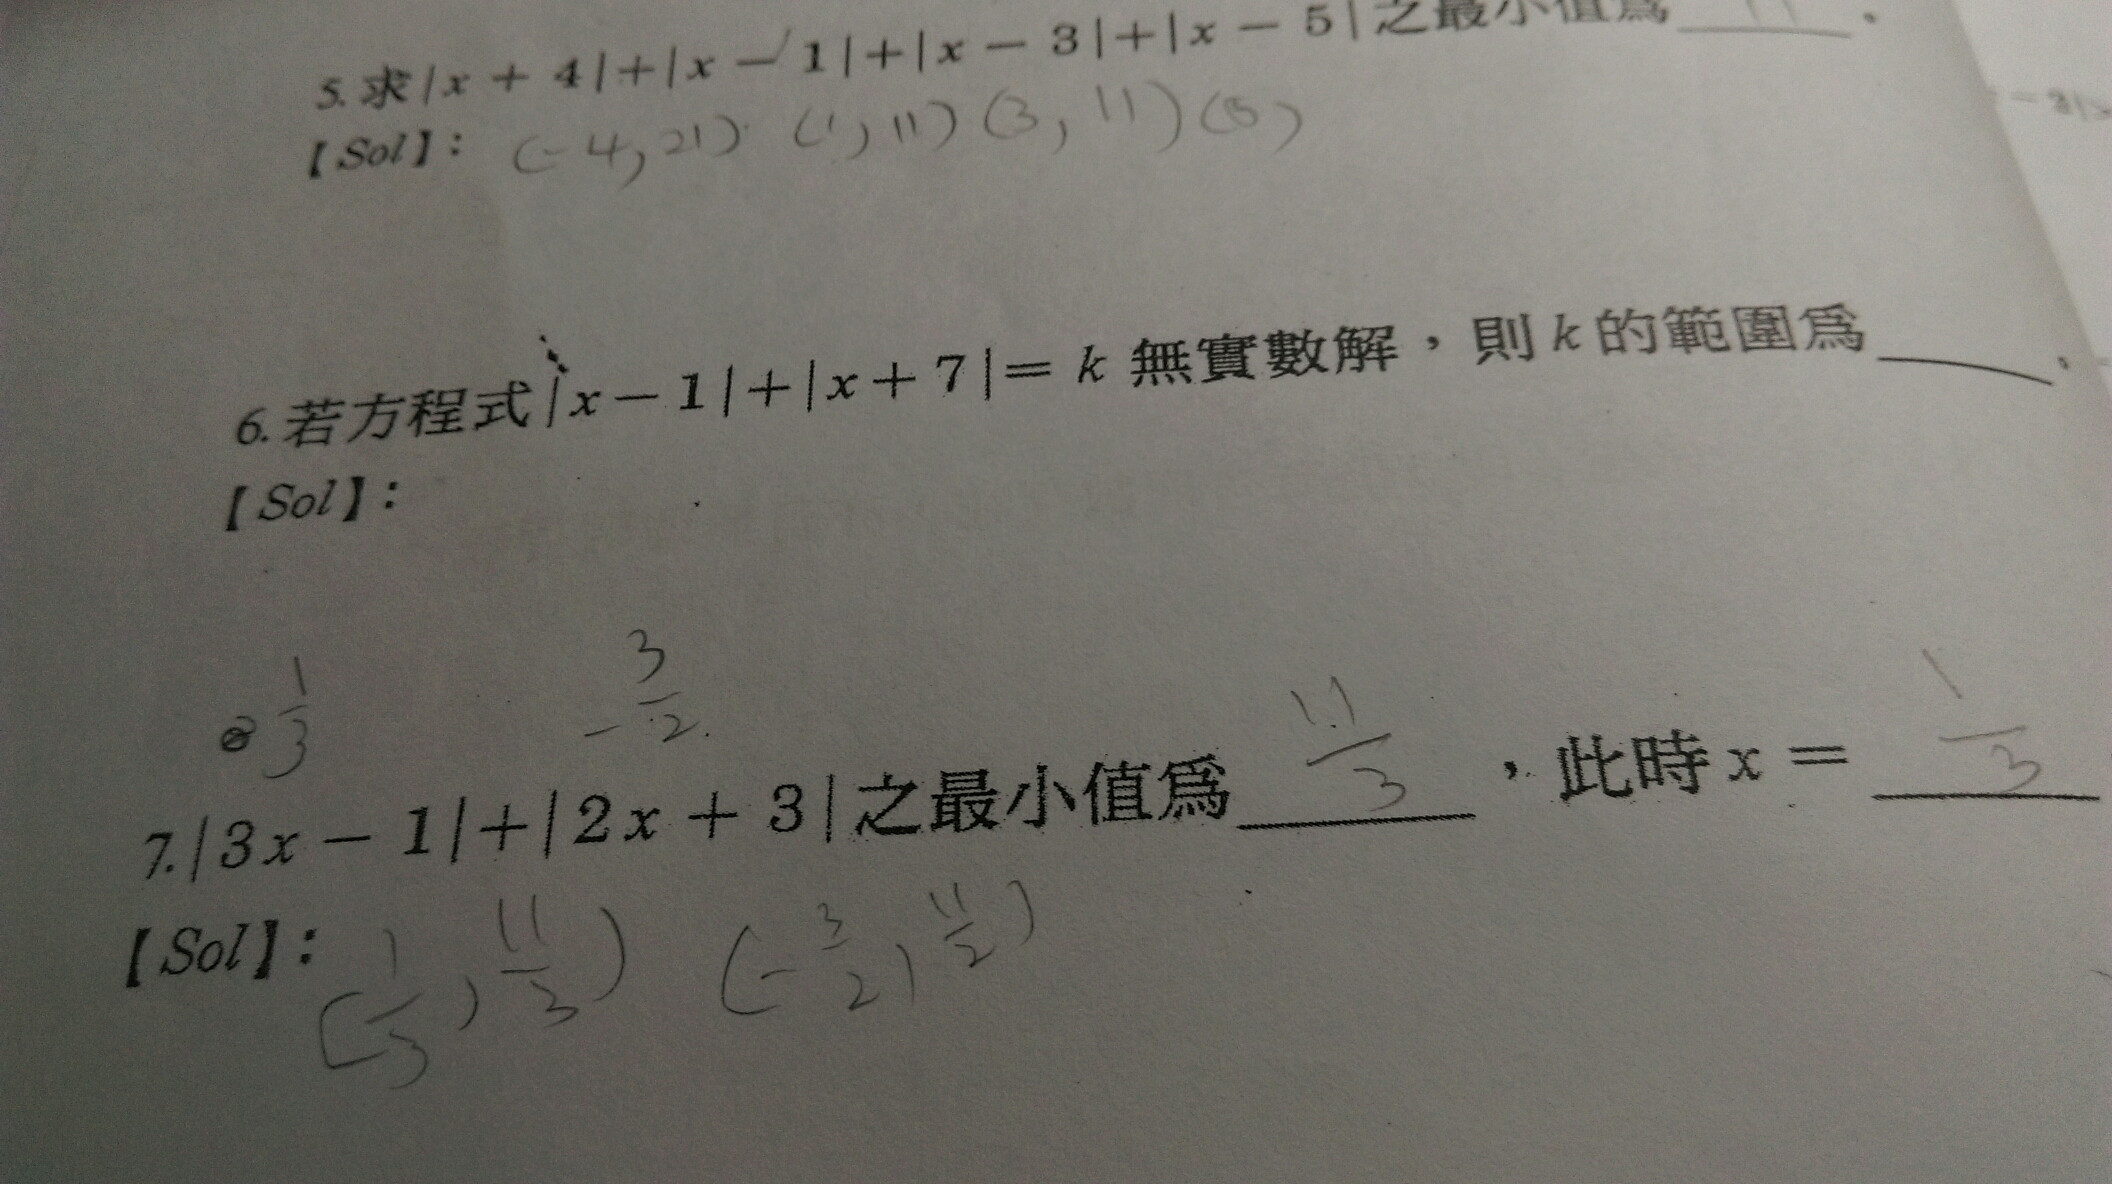 5. 求|x + 4|+|x - 1|+|x - 3|+|x - 5|之最小值爲 11 。
【Sol】: (-4, 21) (1, 11) (3, 11) (5)
6. 若方程式|x - 1|+|x + 7|= k 無實數解，則 k 的範圍爲
【Sol】:
1/3 -3/2
7. |3x - 1|+|2x + 3|之最小值爲 11/3 ，此時 x = 1/3
【Sol】: (1/3, 11/3) (-3/2, 11/2)